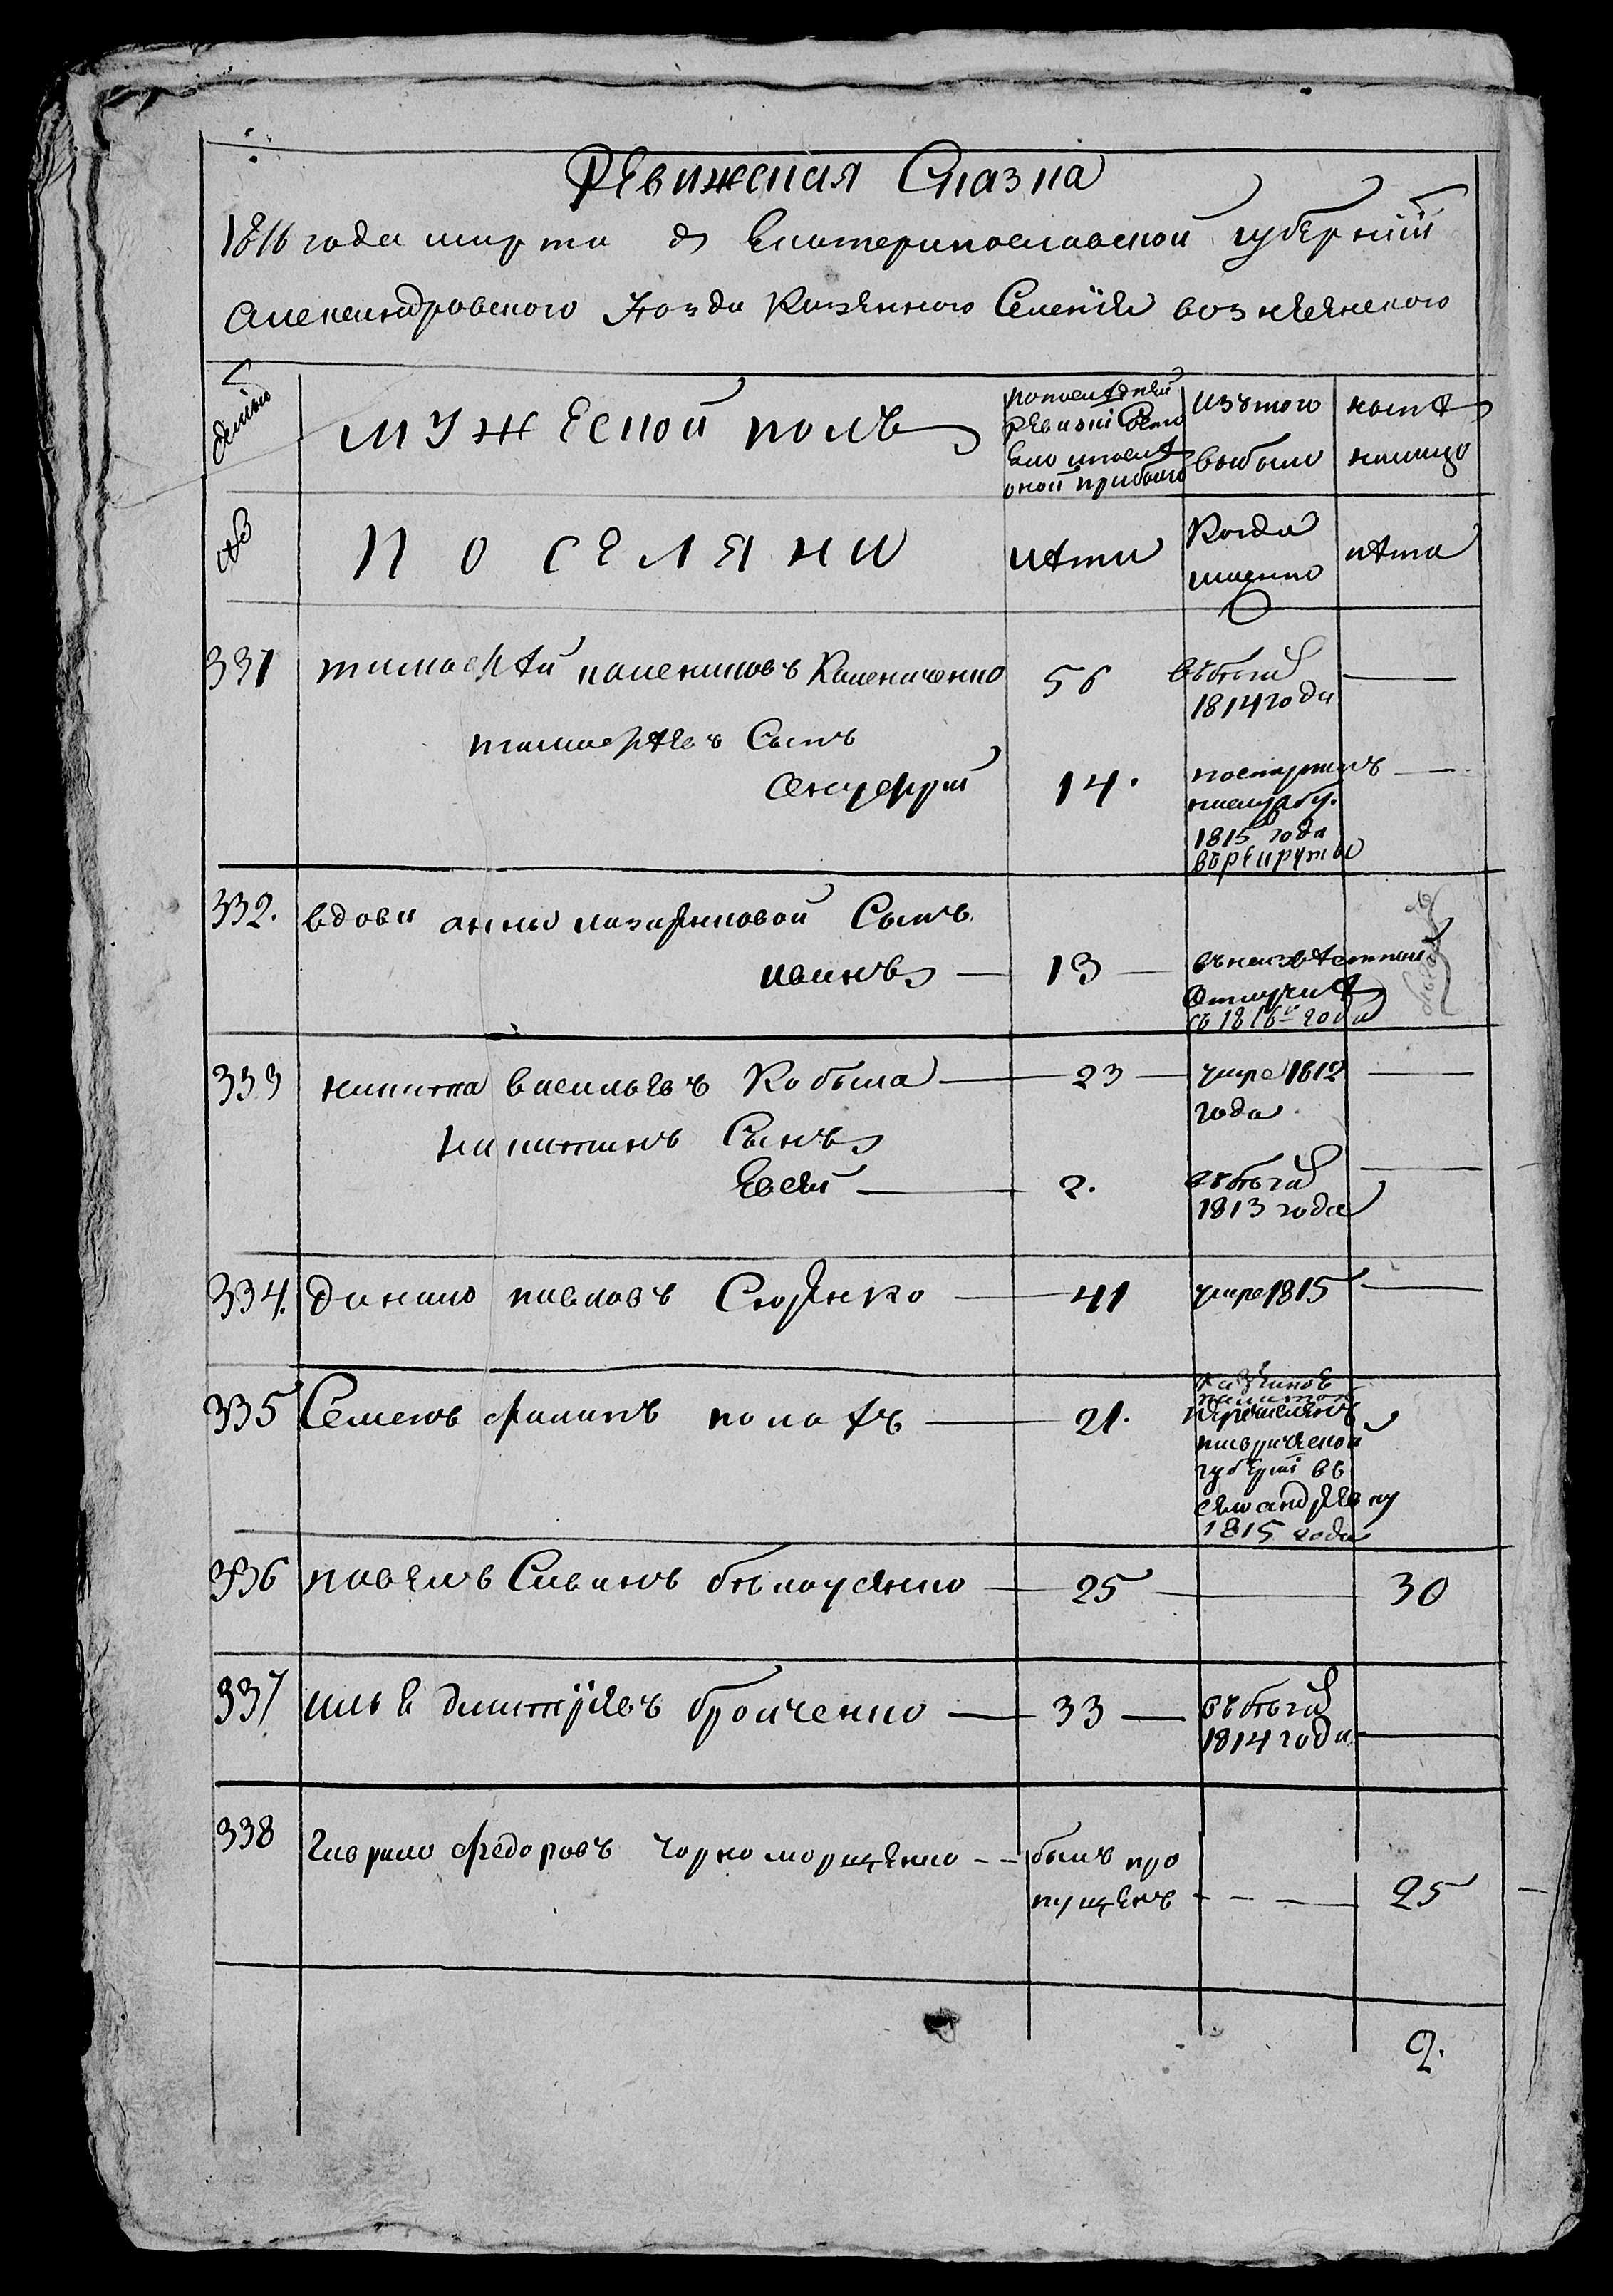 Ревижская Сказка
1816 года марта дня Екатеринославской губернiи
Александровского Уезда Казенного Селенiя вознесенского
Семьи
мужеской полъ
по последней ревизiи состояло и после оной прибыло
изъ того выбыло
ныне на лицо
№
поселяни
лѣта
Когда именно
лѣта
331 тимофѣй калениковъ Калениченко 56 въ бѣгахъ 1814 года
тимофѣевъ Сынъ
Онуфрий 14. поступилъ 1815 года въ рекруты
332. вдовы анны назарковой Сынъ
иванъ 13 въ неизвѣстной Отлучкѣ съ 1816го года
333 никита васильевъ Кобыла 23 умре 1812 года
никитинъ Сынъ
Евсей 2. въ бѣгахъ 1813 года
334. данило павловъ Сюренко 41 умре 1815
335 Семенъ филипъ 21. перечисленъ таврической губернiи въ село андреевку 1815 года
336 павелъ Саванъ бѣлоусенко 25 30
337 илья дмитрiевъ бройченко 33 въ бѣгахъ 1814 года
338 Гаврило федоровъ Чорноморщенко былъ пропущенъ 25
2.